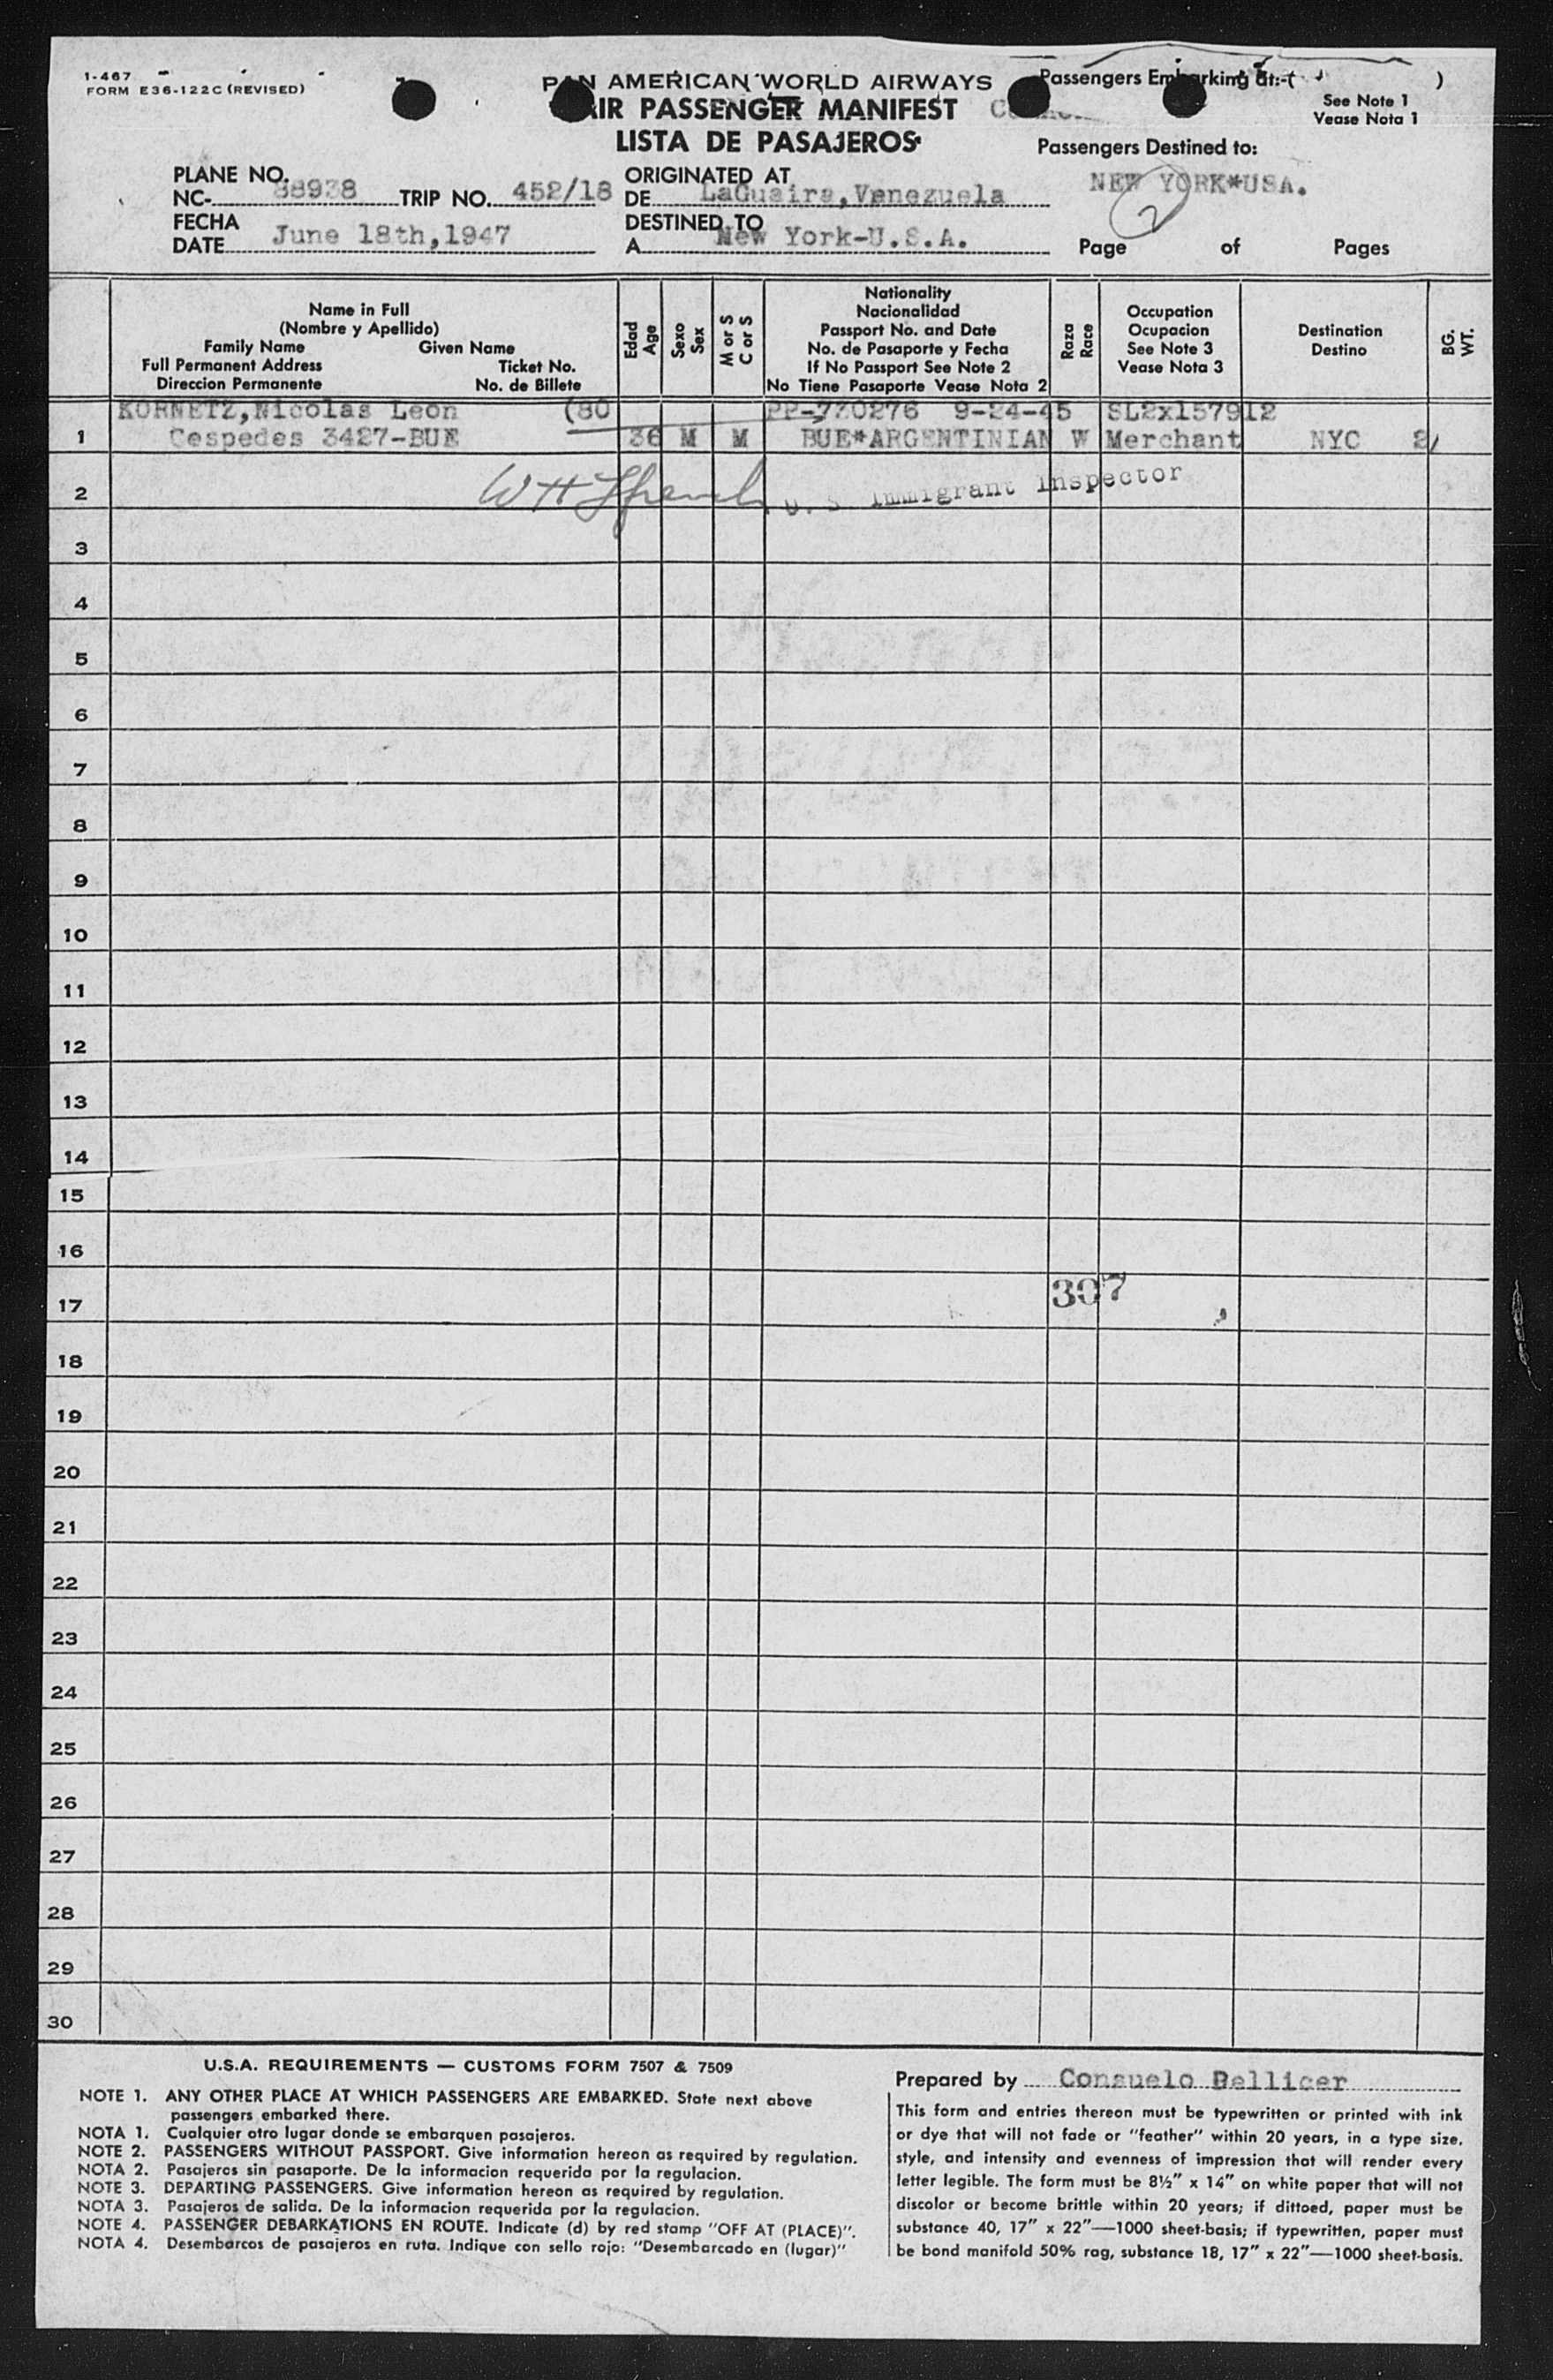 1-467
FORM E36-122C (REVISED)
PAN AMERICAN WORLD AIRWAYS
AIR PASSENGER MANIFEST
LISTA DE PASAJEROS
Passengers Embarking at:-( )
See Note 1
Vease Nota 1
Passengers Destined to:
NEW YORK*USA.
2
PLANE NO.
NC- 88938 TRIP NO. 452/18
ORIGINATED AT
DE LaGuaira,Venezuela
FECHA
DATE June 18th,1947
DESTINED TO
A New York-U.S.A.
Page of Pages
Name in Full
(Nombre y Apellido)
Family Name Given Name
Full Permanent Address Ticket No.
Direccion Permanente No. de Billete
Edad
Age
Sexo
Sex
M or S
C or S
Nationality
Nacionalidad
Passport No. and Date
No. de Pasaporte y Fecha
If No Passport See Note 2
No Tiene Pasaporte Vease Nota 2
Raza
Race
Occupation
Ocupacion
See Note 3
Vease Nota 3
Destination
Destino
BG.
WT.
KORNETZ,Nicolas Leon (80 PP-730276 9-24-45 SL2x157912
1 Cespedes 3427-BUE 36 M M BUE*ARGENTINIAN W Merchant NYC 2/
2 W H U. S. Immigrant Inspector
3
4
5
6
7
8
9
10
11
12
13
14
15
16
307
17
18
19
20
21
22
23
24
25
26
27
28
29
30
U.S.A. REQUIREMENTS — CUSTOMS FORM 7507 & 7509
NOTE 1. ANY OTHER PLACE AT WHICH PASSENGERS ARE EMBARKED. State next above
passengers embarked there.
NOTA 1. Cualquier otro lugar donde se embarquen pasajeros.
NOTE 2. PASSENGERS WITHOUT PASSPORT. Give information hereon as required by regulation.
NOTA 2. Pasajeros sin pasaporte. De la informacion requerida por la regulacion.
NOTE 3. DEPARTING PASSENGERS. Give information hereon as required by regulation.
NOTA 3. Pasajeros de salida. De la informacion requerida por la regulacion.
NOTE 4. PASSENGER DEBARKATIONS EN ROUTE. Indicate (d) by red stamp "OFF AT (PLACE)".
NOTA 4. Desembarcos de pasajeros en ruta. Indique con sello rojo: "Desembarcado en (lugar)"
Prepared by Consuelo Pellicer
This form and entries thereon must be typewritten or printed with ink
or dye that will not fade or "feather" within 20 years, in a type size,
style, and intensity and evenness of impression that will render every
letter legible. The form must be 8½" x 14" on white paper that will not
discolor or become brittle within 20 years; if dittoed, paper must be
substance 40, 17" x 22"—1000 sheet-basis; if typewritten, paper must
be bond manifold 50% rag, substance 18, 17" x 22"—1000 sheet-basis.